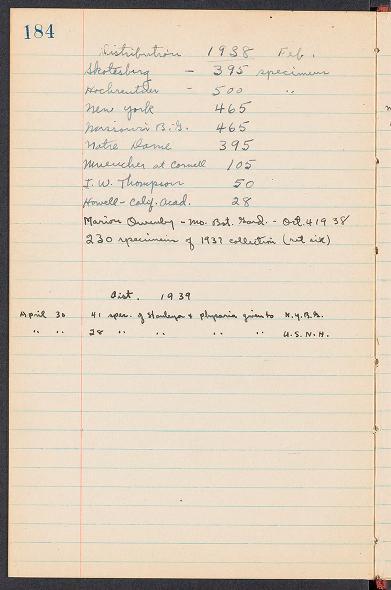 184
Distribution 1938 Feb.
Skotesberg - 395 specimens
Hochreutiner - 500 "
New York 465
Missouri B.G. 465
Notre Dame 395
Muencher at Cornell 105
J. W. Thompson 50
Howell - Calif. Acad. 28
Marion Ownbey - Mo. Bot. Gard. - Oct. 4 1938
230 specimens of 1937 collection
Dist. 1939
April 30 41 spec. of Stanleya & physaria given to N.Y.B.G.
" " 28 " " " " U.S.N.H.